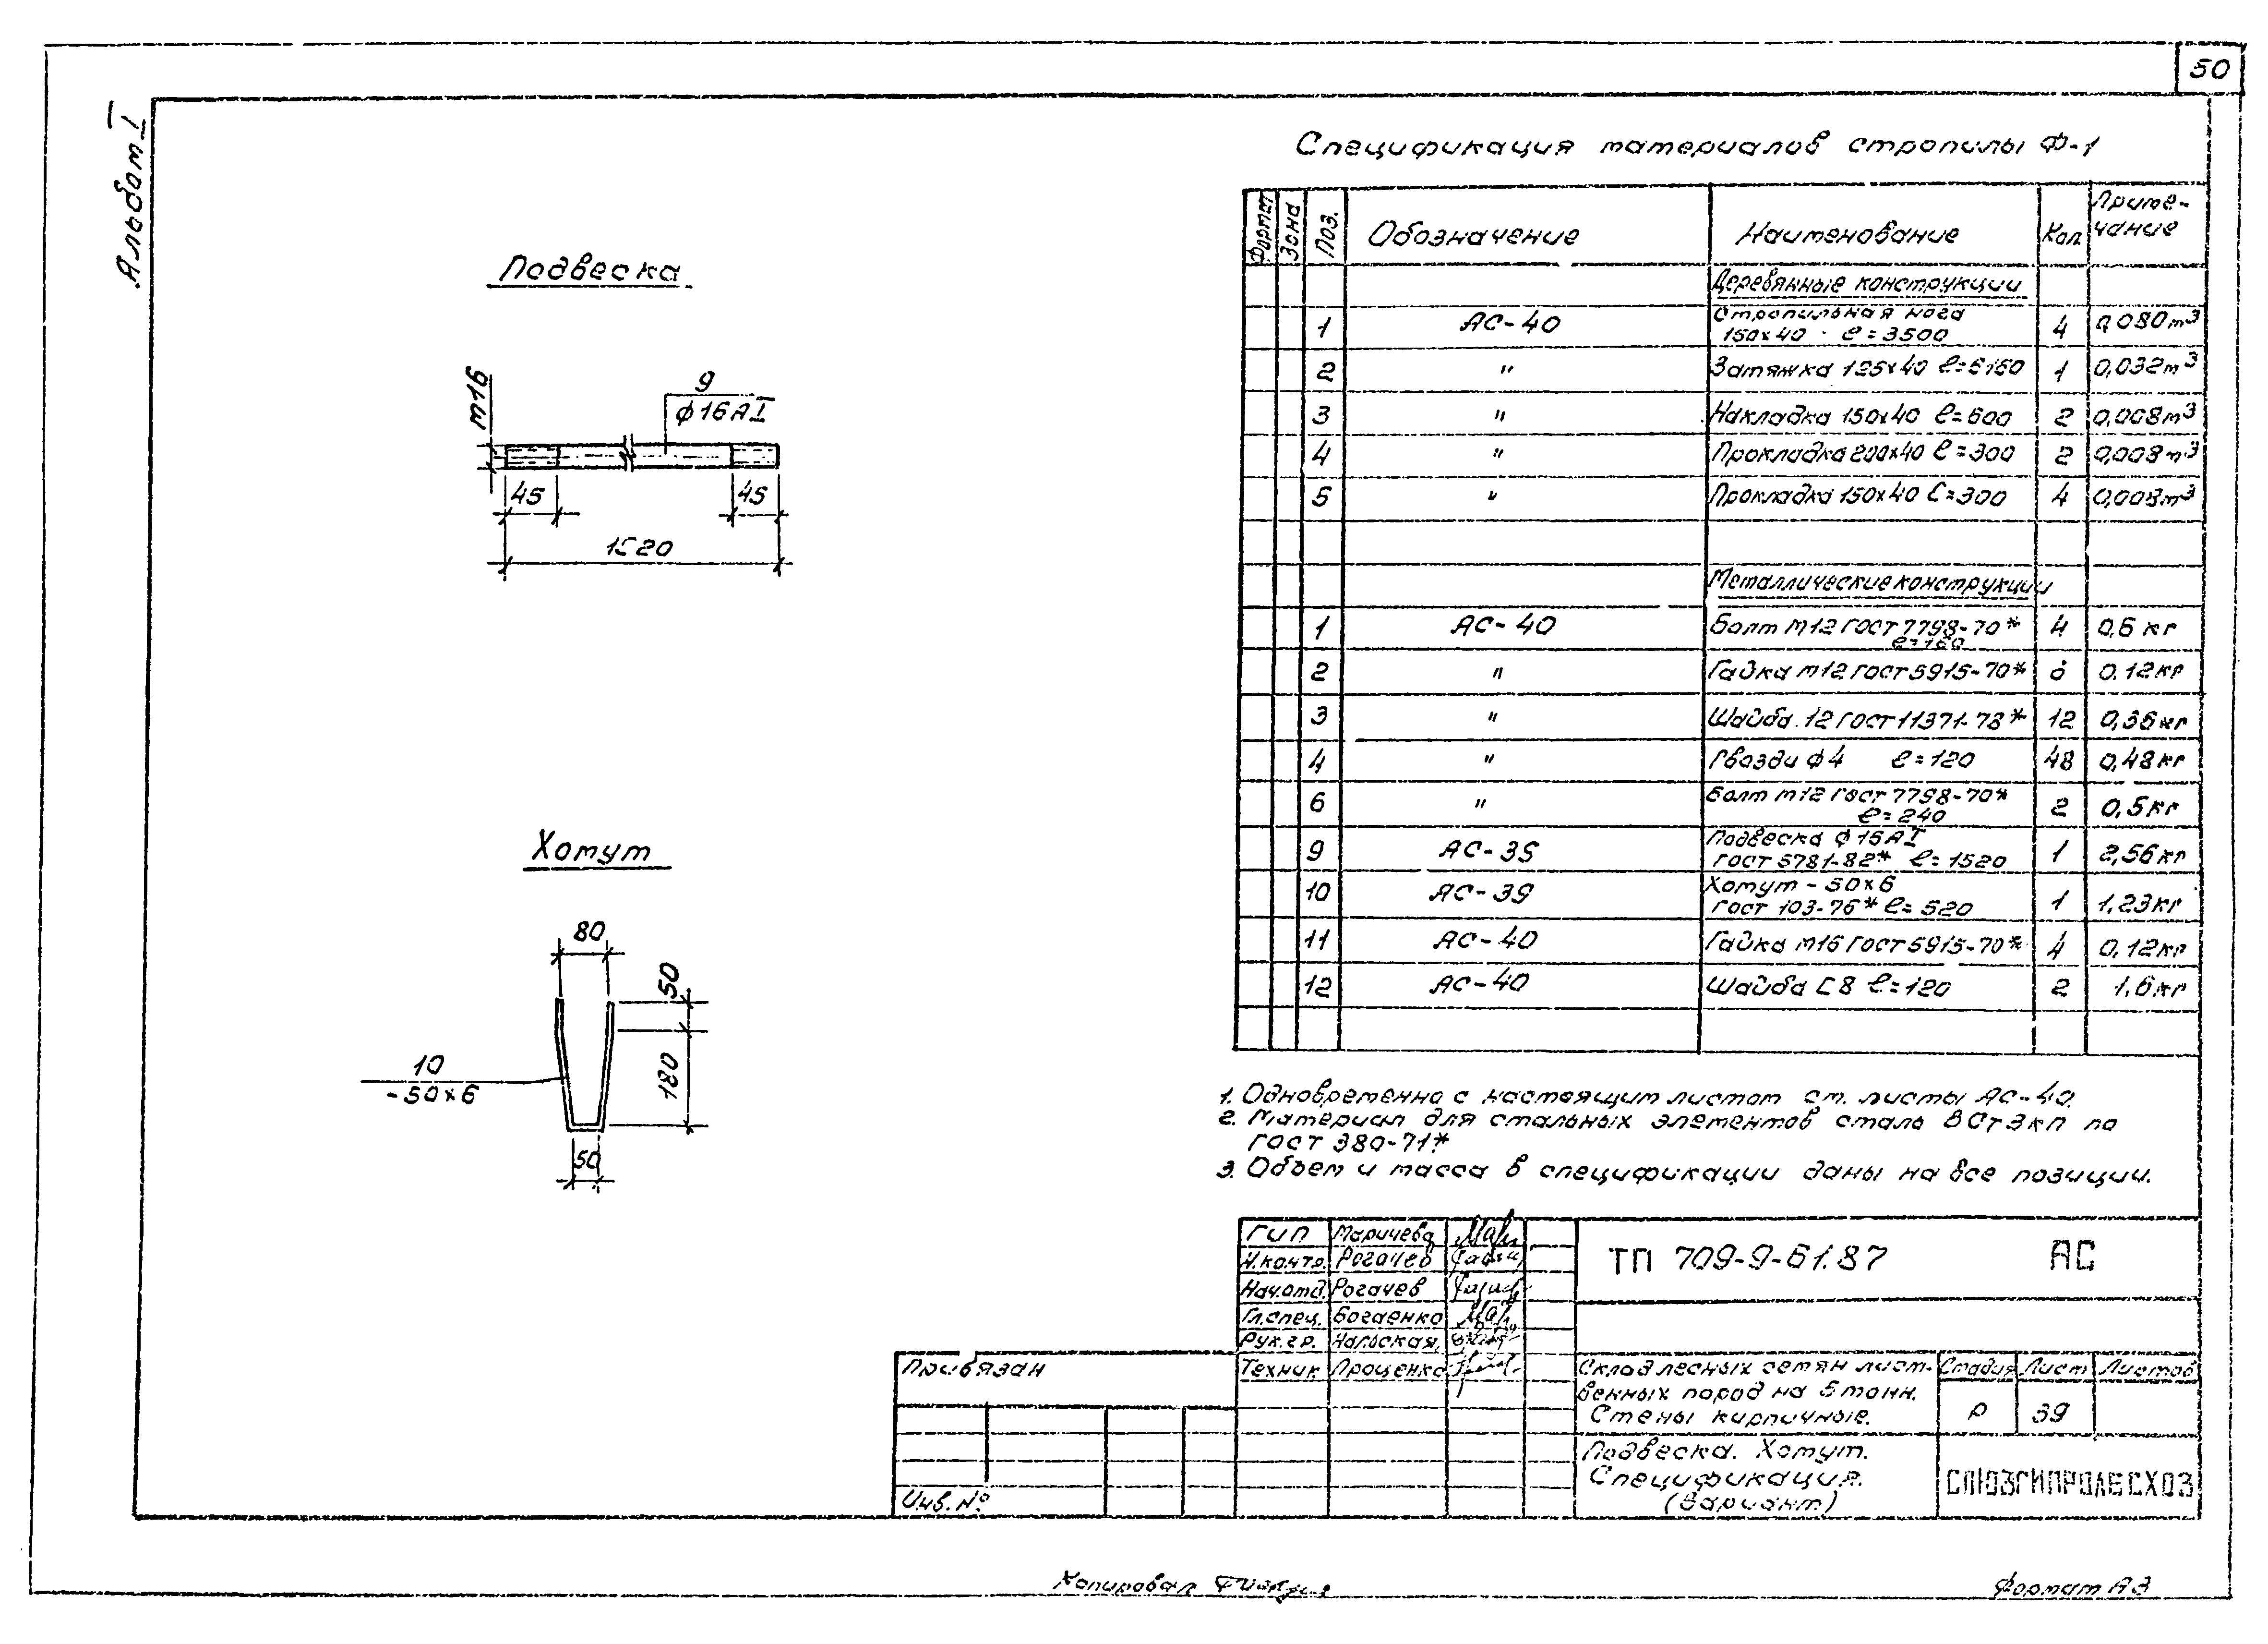 50
Альбом I
Подвеска
м16
9
ф16АI
45
45
1520
Хомут
80
50
180
10
-50х6
50
Спецификация материалов стропилы Ф-1
Формат Зона Поз. Обозначение Наименование Кол. Приме-
чание
Деревянные конструкции
1 АС-40 Стропильная нога
150х40 ℓ=3500 4 0,080м³
2 " Затяжка 125х40 1 0,032м³
3 " Накладка 150х40 ℓ=600 2 0,008м³
4 " Прокладка 200х40 ℓ=300 2 0,008м³
5 " Прокладка 150х40 ℓ=300 4 0,008м³
Металлические конструкции
1 АС-40 Болт М12 ГОСТ 7798-70* 4 0,6 кг
2 " Гайка м12 ГОСТ 5915-70* 0.12кг
3 " Шайба 12 ГОСТ 11371-78* 12 0,36кг
4 " Гвозди ф4 ℓ=120 48 0,48кг
6 " Болт м12 ГОСТ 7798-70*
ℓ=240 2 0,5кг
9 Подвеска ф16АI
ГОСТ 5781-82* ℓ=1520 1 2,56кг
10 АС-39 Хомут -50х6
ГОСТ 103-76* ℓ=520 1 1,23кг
11 АС-40 Гайка м16 ГОСТ 5915-70* 4 0,12кг
12 АС-40 Шайба [8 ℓ=120 2 1,6кг
1. Одновременно с настоящим листом см. листы АС-40.
2. Материал для стальных элементов сталь ВСт3кп по
ГОСТ 380-71*
3. Объем и масса в спецификации даны на все позиции.
ГИП Маричева
Н.контр. Рогачев
Нач.отд. Рогачев
Гл.спец. Богаенко
Рук.гр.
Техник Проценко
ТП 709-9-61.87 АС
Привязан
Инв. №
Склад лесных семян лист-
венных пород на 5 тонн.
Стены кирпичные.
Стадия Лист Листов
Р 39
Подвеска. Хомут.
Спецификация.
(Вариант)
СОЮЗГИПРОЛЕСХОЗ
Копировал
Формат А3